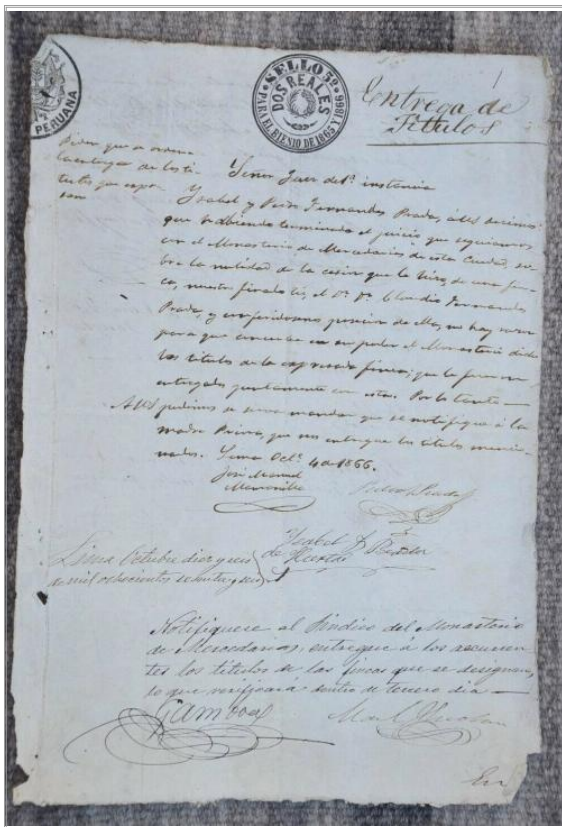 PERUANA
SELLO 5º
DOS REALES
PARA EL BIENIO DE 1865 Y 1866
1
Entrega de
Titulos
Piden que se ordene
la entrega de los ti-
tulos que espre-
san
Señor Juez de 1ª instancia
Ysabel y Pedro Fernandez Prada, á US decimos:
que habiendo terminado el juicio que seguiamos
con el Monasterio de Mercedarias de esta Ciudad, so-
bre la nulidad de la cesion que le hizo de una fin-
ca, nuestro finado tio, el D. D. Claudio Fernandez
Prada, y posesion de ella, no hay razon
para que en su poder el Monasterio dichos
los titulos de la espresada finca, que le fueron
entregados juntamente con esta. Por lo tanto
A US pedimos se sirva mandar que se notifique á la
madre Priora, que nos entregue los titulos mencio-
nados. Lima Oct.e 4 de 1866.
José Manuel
Pedro Prada
Ysabel F. Prada
de
Lima Octubre diez y seis
de mil ochocientos sesenta y seis
Notifiquese al Sindico del Monasterio
de Mercedarias, entregue á los recurren-
tes los titulos de las fincas que se designan,
lo que verificará dentro de tercero dia
Gamboa
En